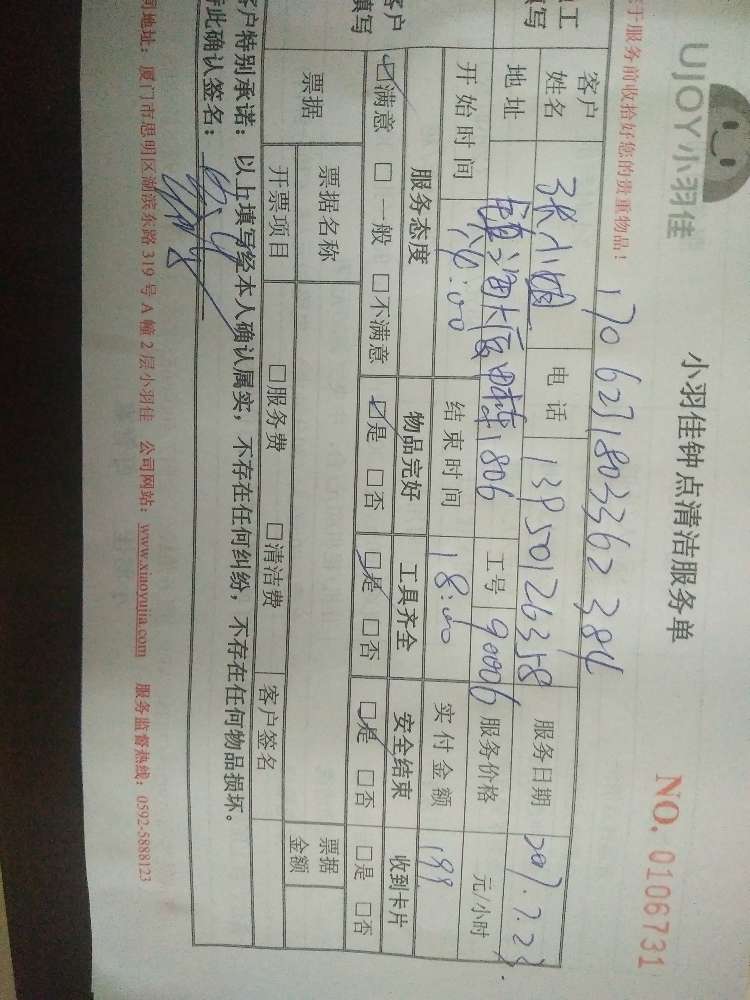 UJOY小羽佳
小羽佳钟点清洁服务单
NO. 0106731
于服务前收拾好您的贵重物品！
1706271803362384
客户姓名 张小姐 电话 13950126358 服务日期 2017.7.23
地址 1806 工号 90006 服务价格 元/小时
开始时间 14:00 结束时间 18:00 实付金额 199
服务态度 物品完好 工具齐全 安全结束 收到卡片
☑满意 □一般 □不满意 ☑是 □否 ☑是 □否 ☑是 □否 □是 □否
票据 票据名称 票据金额
开票项目 □服务费 □清洁费 客户签名
客户特别承诺：以上填写经本人确认属实，不存在任何纠纷，不存在任何物品损坏。
此确认签名：
地址：厦门市思明区湖滨东路 319 号 A 幢 2 层小羽佳 公司网站：www.xiaoyujia.com 服务监督热线：0592-5888123